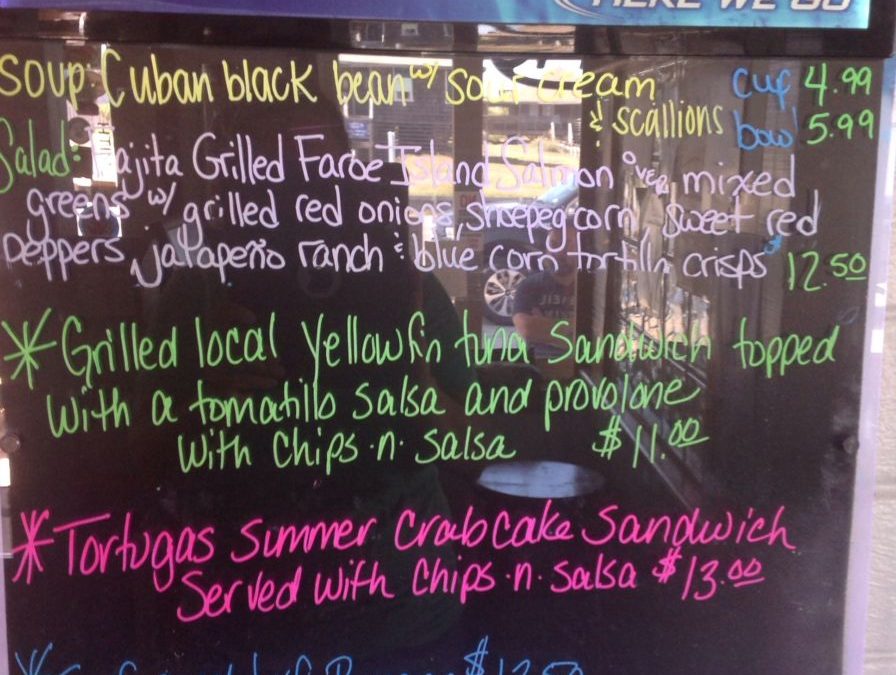 HERE WE GO
Soup Cuban black bean w/ sour cream cup 4.99
& scallions bowl 5.99
Salad: Fajita Grilled Faroe Island Salmon over mixed
greens w/ grilled red onions, shoepeg corn, sweet red
peppers, jalapeño ranch & blue corn tortilla crisps 12.50
*Grilled local yellowfin tuna sandwich topped
with a tomatillo salsa and provolone
with chips·n·salsa $11.00
*Tortugas summer crabcake sandwich
Served with chips·n·salsa $13.00
$12.50